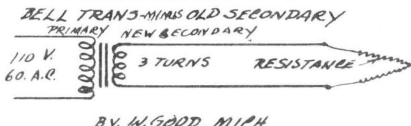 BELL TRANS-MINUS OLD SECONDARY
PRIMARY NEW SECONDARY
110 V.
60. A.C.
3 TURNS
RESISTANCE
BY. W. GOOD MICH